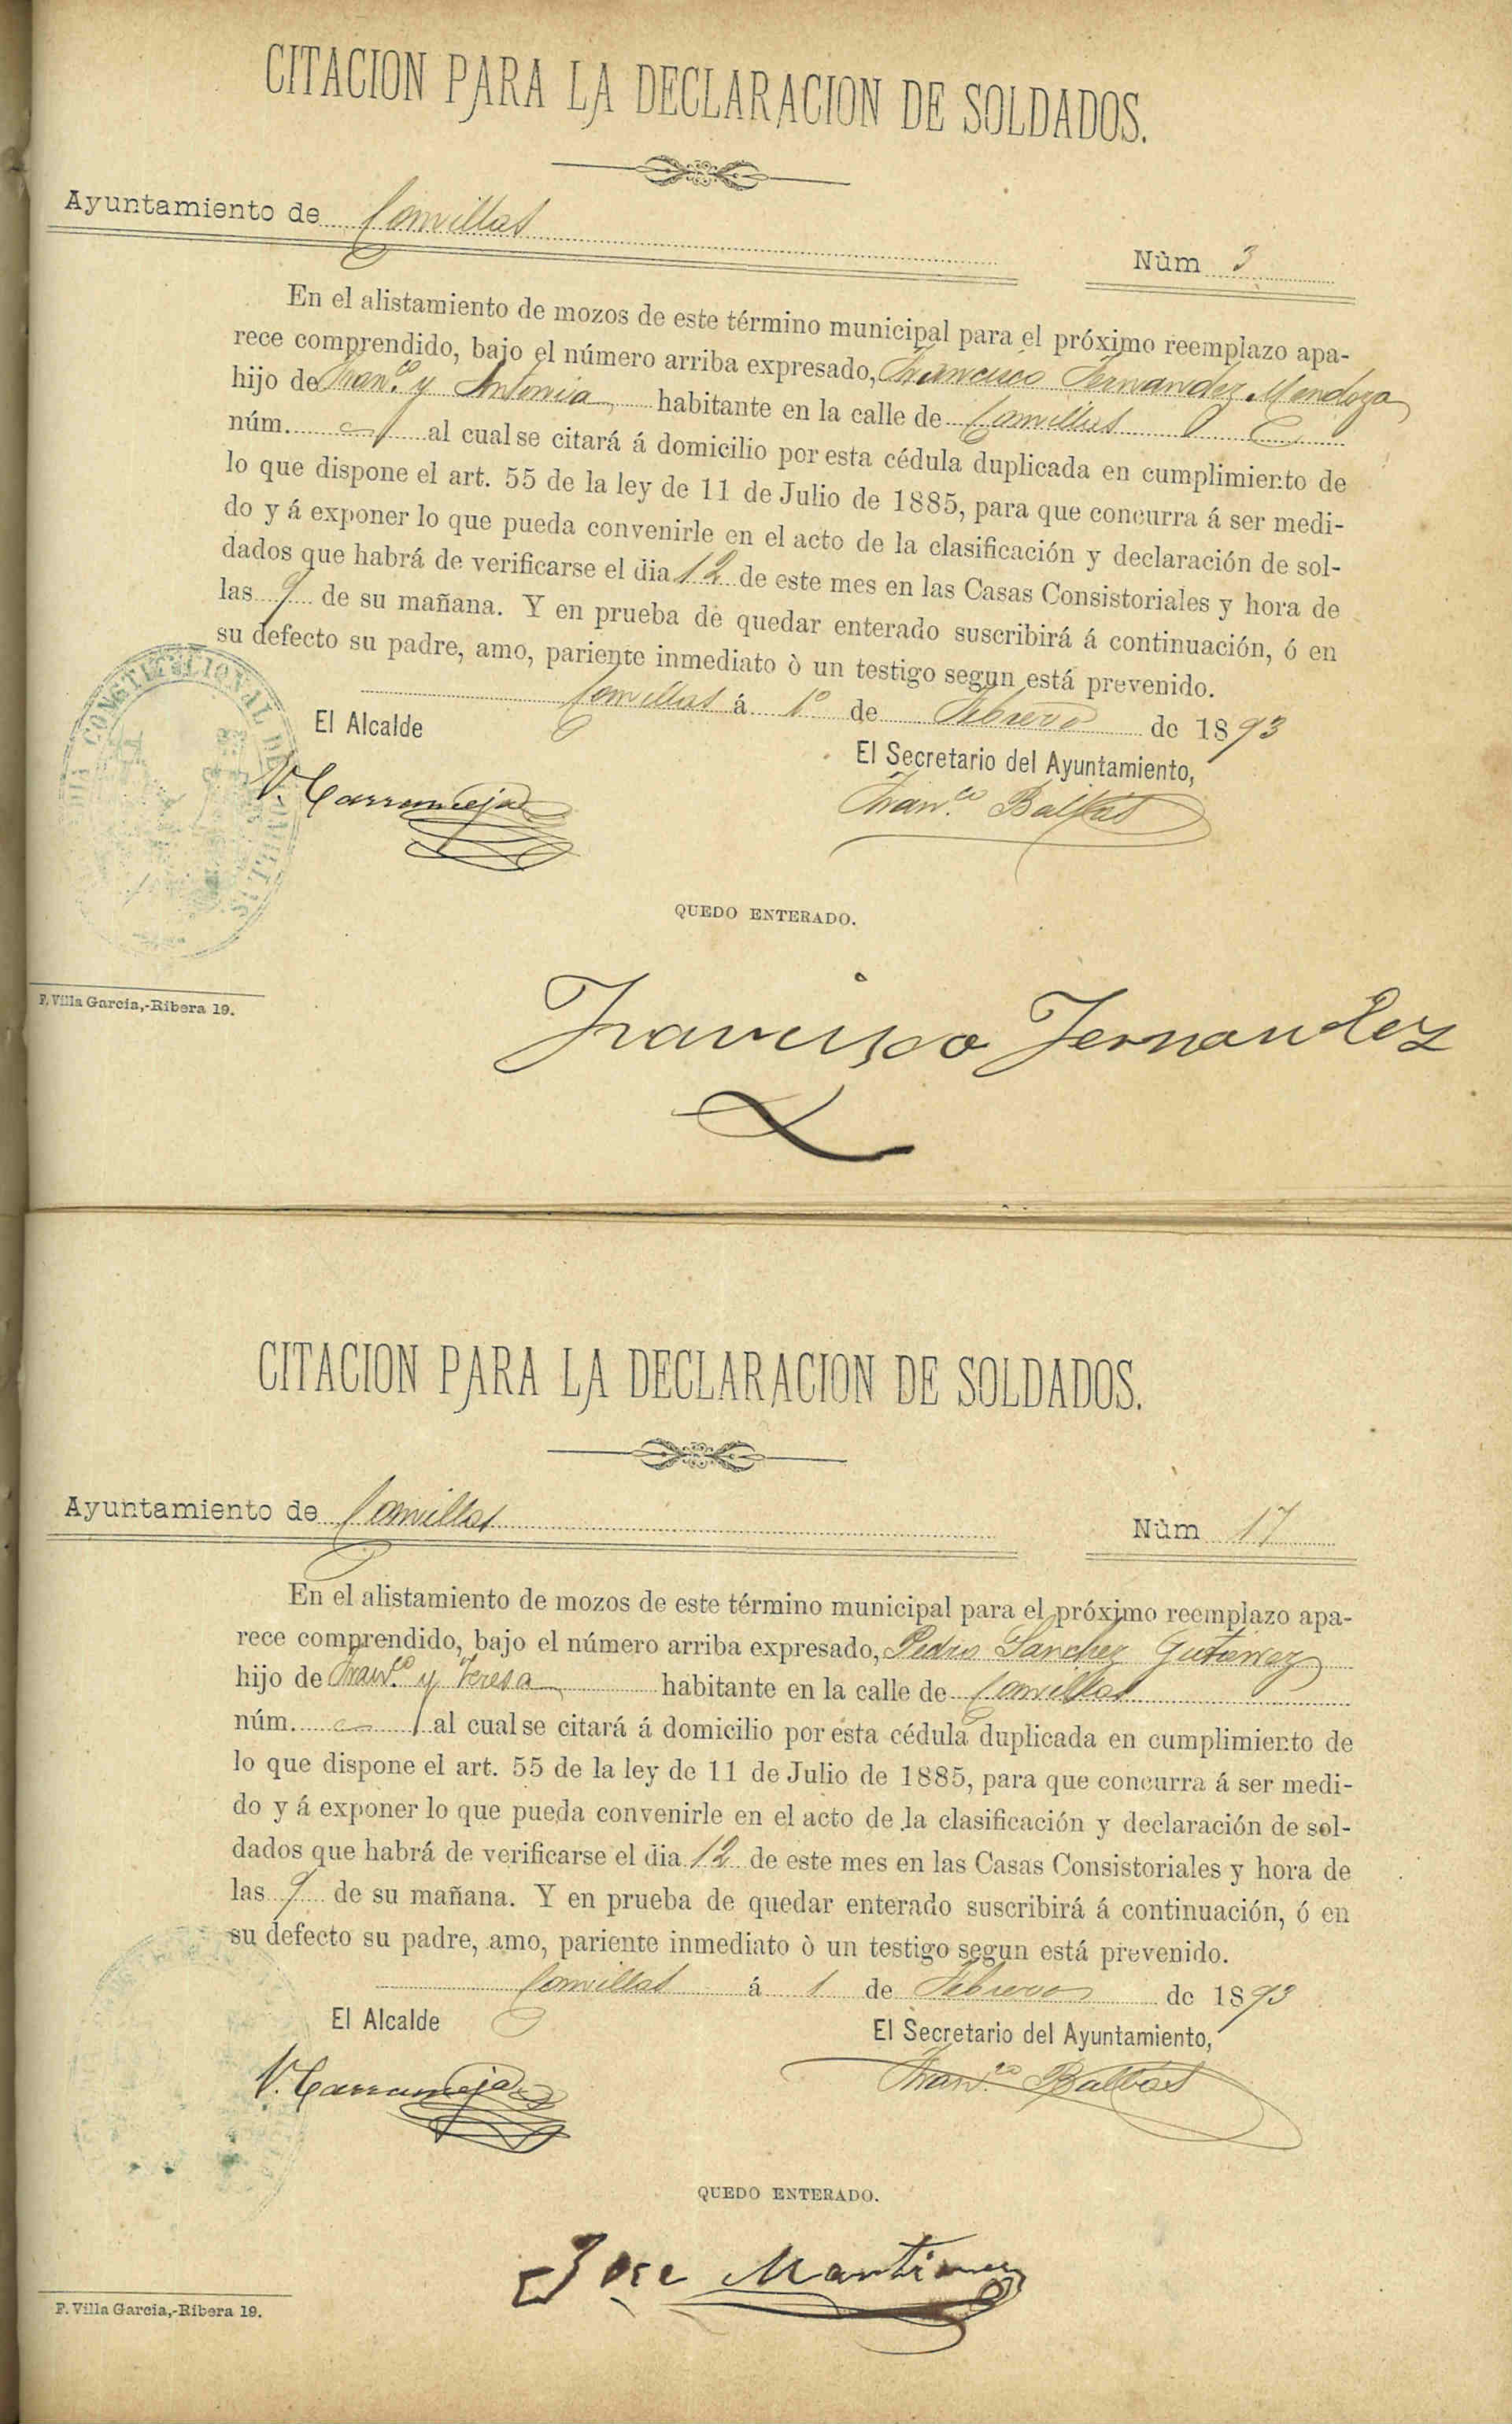 CITACION PARA LA DECLARACION DE SOLDADOS.
Ayuntamiento de Comillas
Nùm 3
En el alistamiento de mozos de este término municipal para el próximo reemplazo apa-
rece comprendido, bajo el número arriba expresado, Francisco Fernandez Mendoza
hijo de Fran.co y Antonia habitante en la calle de Comillas
núm. al cual se citará á domicilio por esta cédula duplicada en cumplimiento de
lo que dispone el art. 55 de la ley de 11 de Julio de 1885, para que concurra á ser medi-
do y á exponer lo que pueda convenirle en el acto de la clasificación y declaración de sol-
dados que habrá de verificarse el dia 12 de este mes en las Casas Consistoriales y hora de
las 9 de su mañana. Y en prueba de quedar enterado suscribirá á continuación, ó en
su defecto su padre, amo, pariente inmediato ò un testigo segun está prevenido.
Comillas á 1º de Febrero de 1893
El Alcalde
El Secretario del Ayuntamiento,
Fran.co Balbás
QUEDO ENTERADO.
F. Villa García,-Ribera 19.
Francisco Fernandez
CITACION PARA LA DECLARACION DE SOLDADOS.
Ayuntamiento de Comillas
Nùm 17
En el alistamiento de mozos de este término municipal para el próximo reemplazo apa-
rece comprendido, bajo el número arriba expresado, Pedro Sanchez Gutierrez
hijo de Fran.co y Teresa habitante en la calle de Comillas
núm. al cual se citará á domicilio por esta cédula duplicada en cumplimiento de
lo que dispone el art. 55 de la ley de 11 de Julio de 1885, para que concurra á ser medi-
do y á exponer lo que pueda convenirle en el acto de la clasificación y declaración de sol-
dados que habrá de verificarse el dia 12 de este mes en las Casas Consistoriales y hora de
las 9 de su mañana. Y en prueba de quedar enterado suscribirá á continuación, ó en
su defecto su padre, amo, pariente inmediato ò un testigo segun está prevenido.
Comillas á 1 de Febrero de 1893
El Alcalde
El Secretario del Ayuntamiento,
Fran.co Balbás
QUEDO ENTERADO.
Jose Martinez
F. Villa García,-Ribera 19.